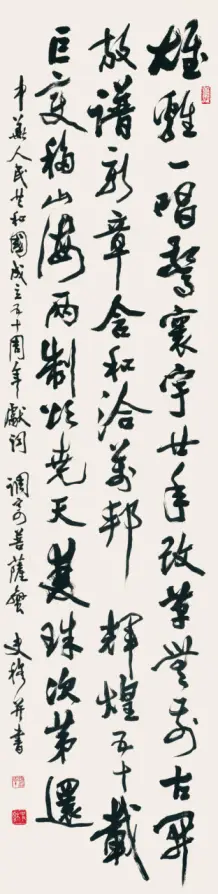 雄雞一唱驚寰宇廿年改革無前古開
放譜新章合和洽萬邦 輝煌五十載
巨變山海兩制頌堯天珠次第還
中華人民共和國成立五十周年獻詞 調寄菩薩蠻 史穆并書